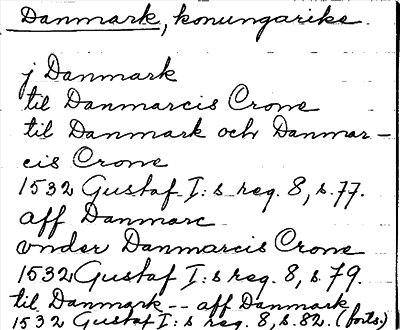 Danmark, konungarike.
j Danmark
til Danmarcis Crone
til Danmark och Danmar-
cis Crone
1532 Gustaf I:s reg. 8, s. 77.
aff Danmarc
vnder Danmarcis Crone
1532 Gustaf I:s reg. 8, s. 79.
til Danmark -- aff Danmark
1532 Gustaf I:s reg. 8, s. 82. (forts.)